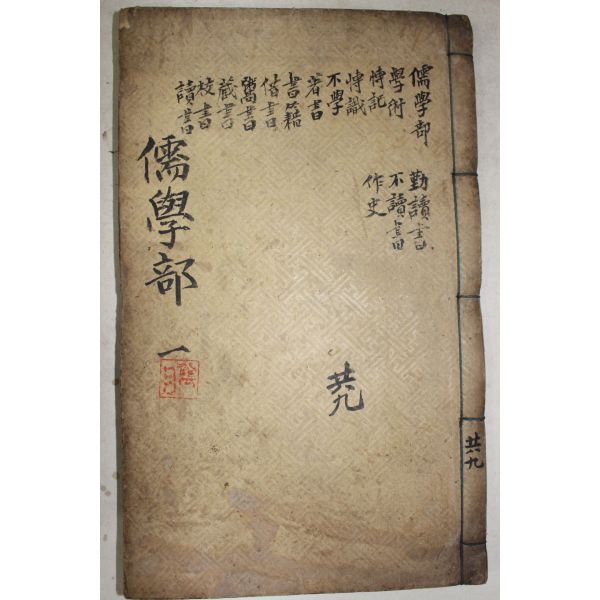 儒學部
學術
博記
博識
不學
著書
書籍
借書
鬻書
藏書
校書
讀書
勤讀書
不讀書
作史
儒學部 一
共九
共九